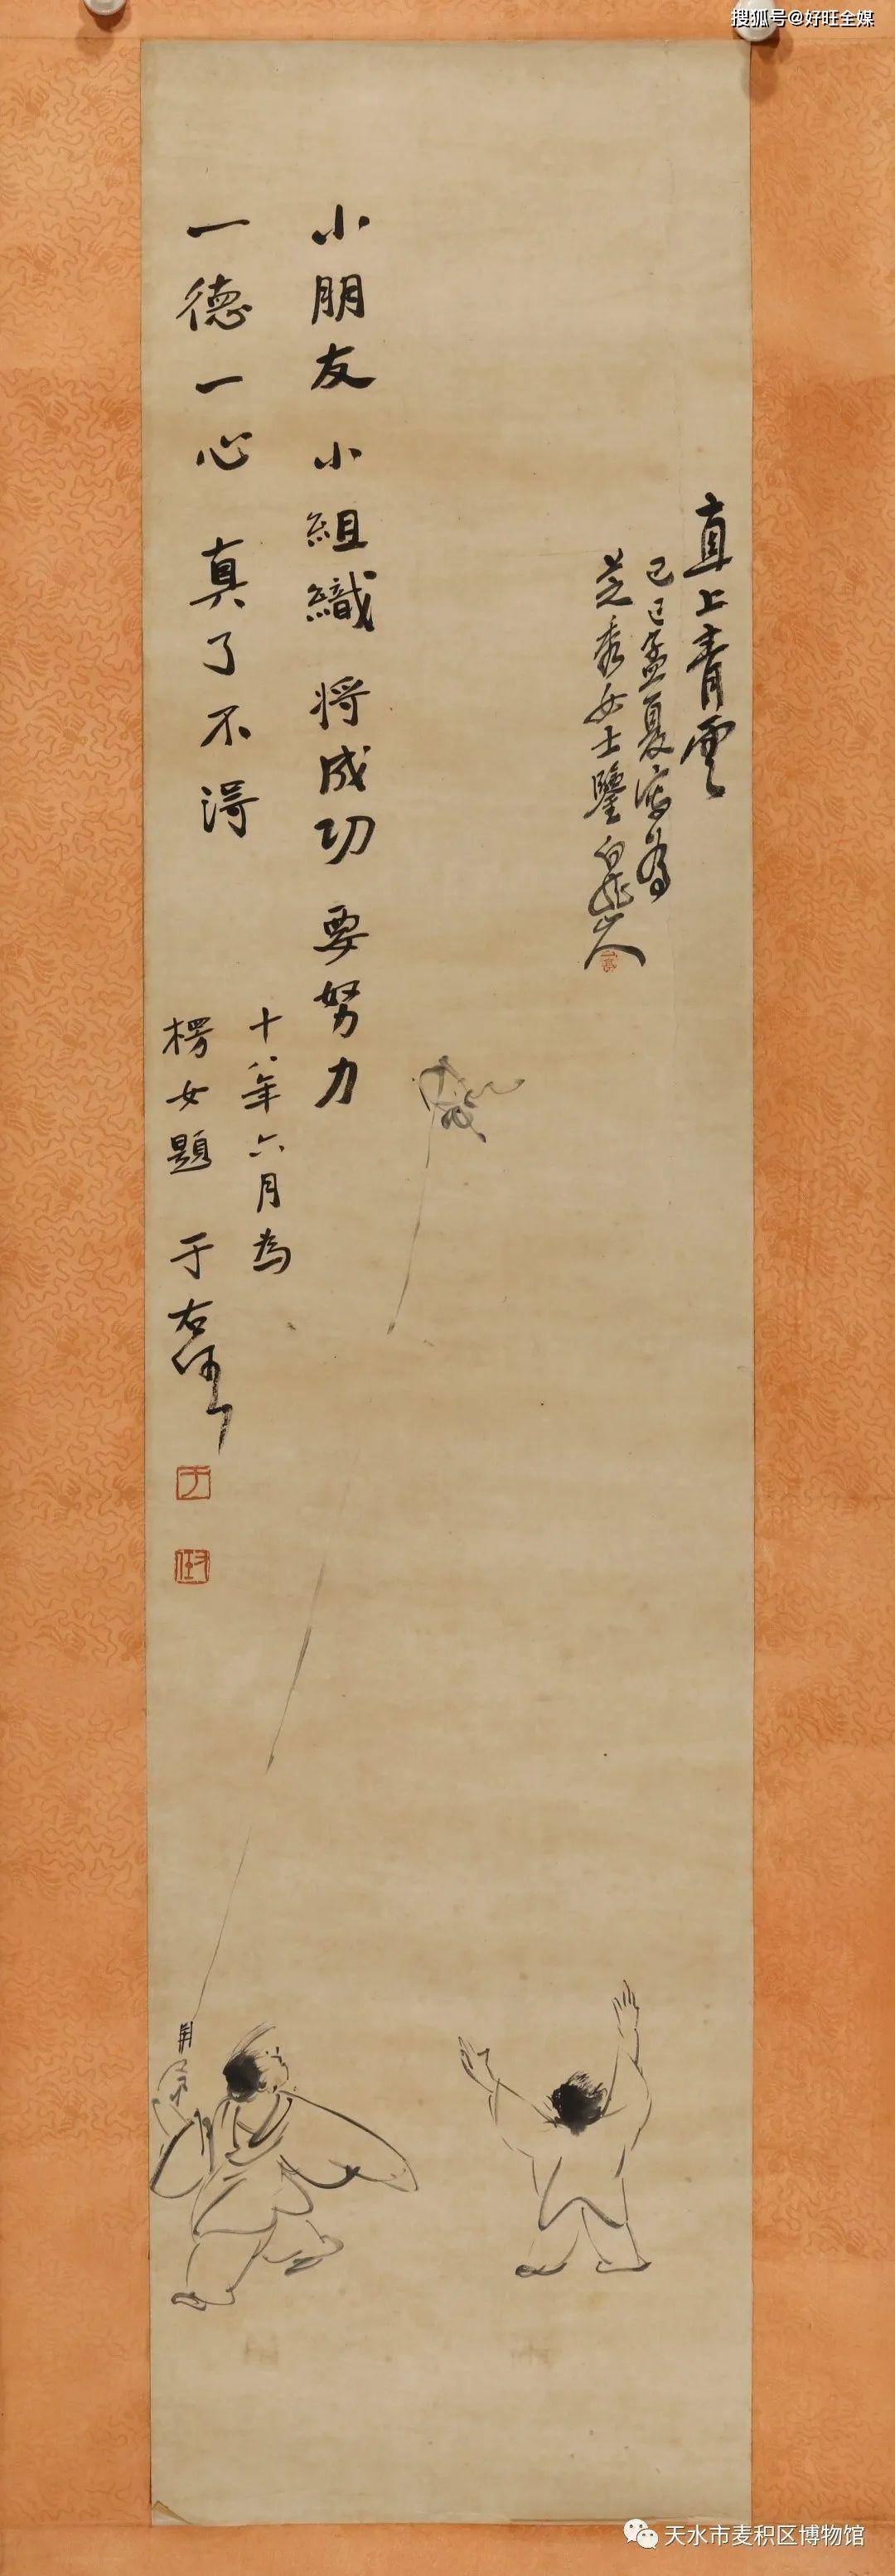 搜狐号@好旺全媒
直上青雲
己巳孟夏寫為
芝秀女士鑒 白龍山人
小朋友 小組織 将成功 要努力
一德一心 真了不淂
十八年六月為
楞女題 于右任
天水市麦积区博物馆